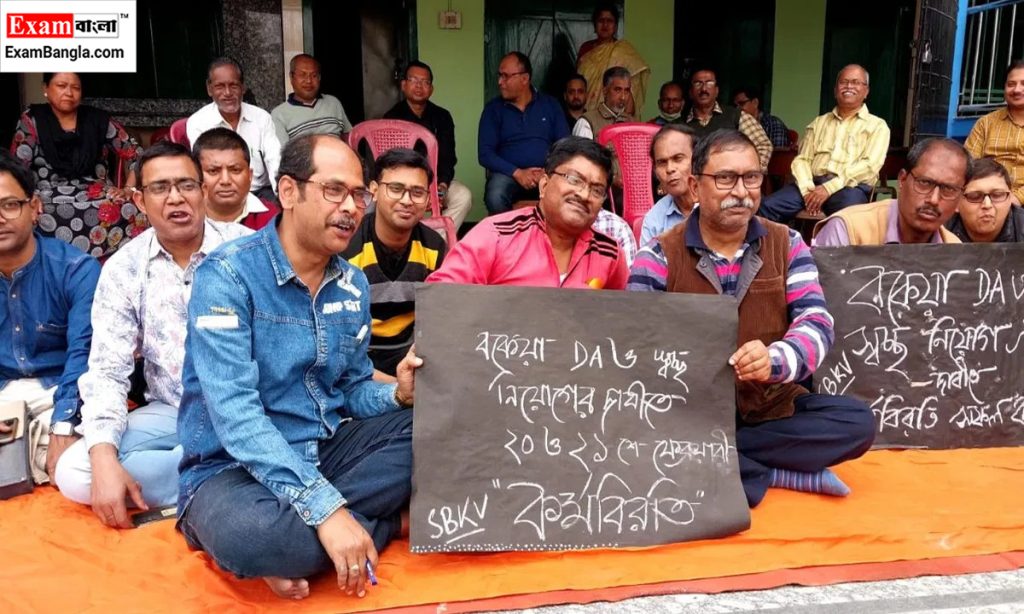 Exam বাংলা
ExamBangla.com
বকেয়া DA ও স্বচ্ছ
নিয়োগের দাবীতে
২০ ও ২১ শে ফেব্রুয়ারী
SBKV "কর্মবিরতি"
"বকেয়া DA
স্বচ্ছ নিয়োগ
SBKV
দাবীতে
কর্মবিরতি সফল